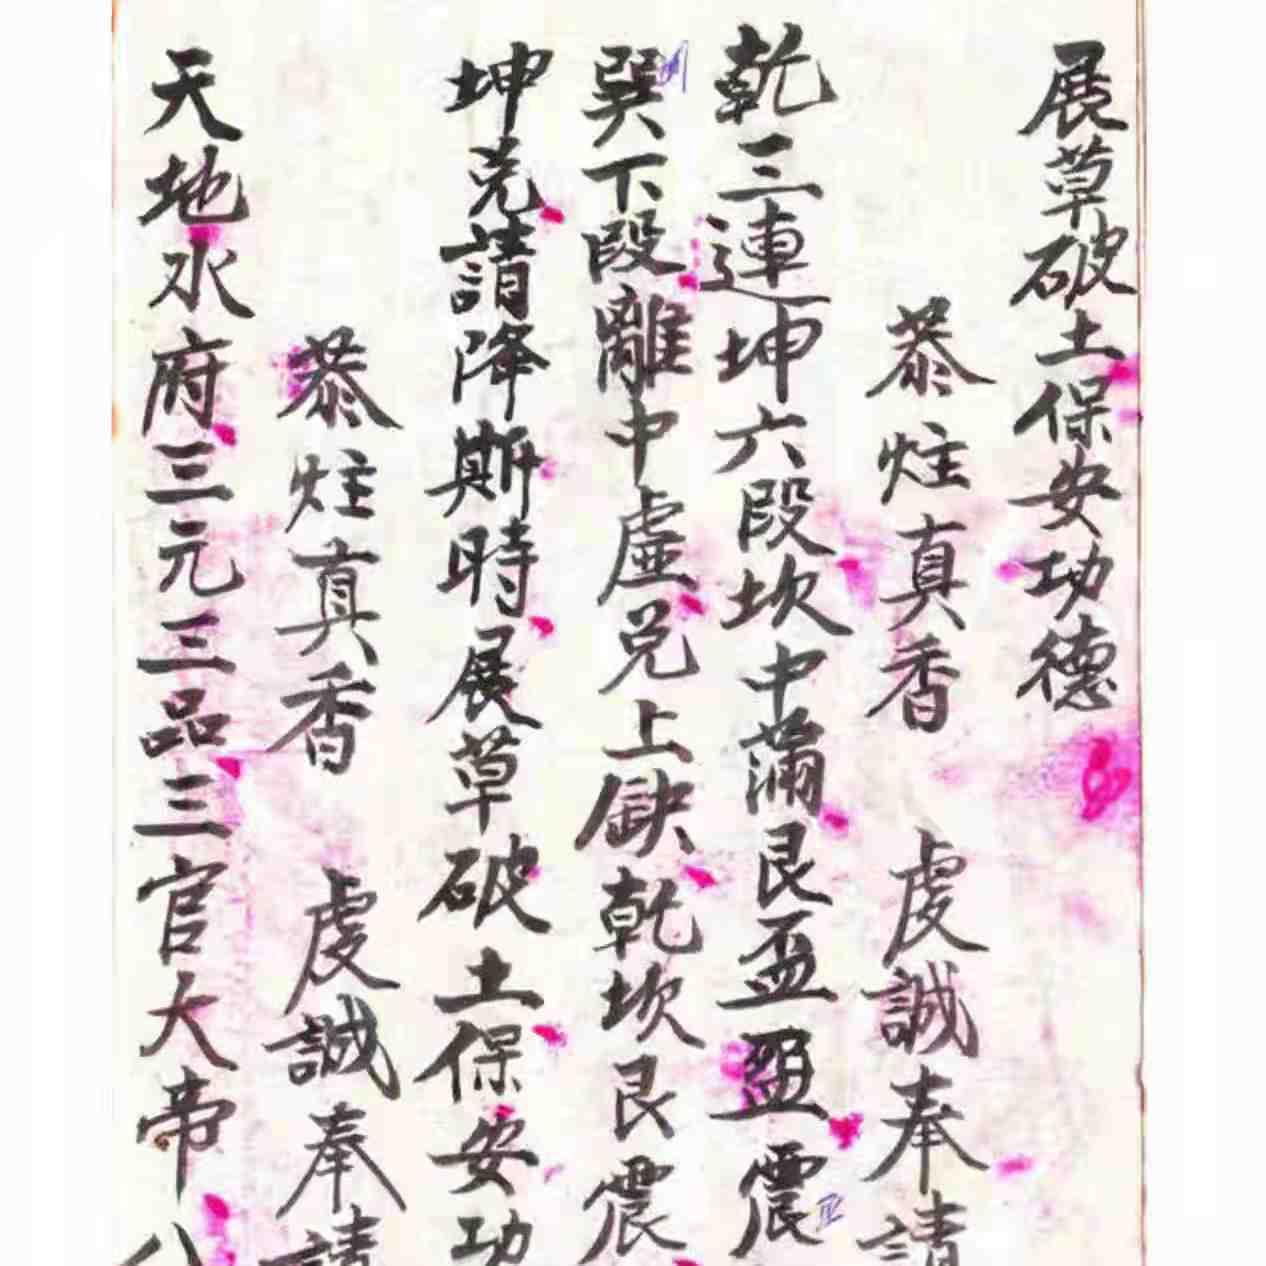 展草破土保安功德
恭炷真香 虔誠奉請
乾三連坤六段坎中滿艮盃盈震
巽下段離中虛兌上缺乾坎艮震
坤兌請降斯時展草破土保安功
恭炷真香 虔誠奉請
天地水府三元三品三官大帝八